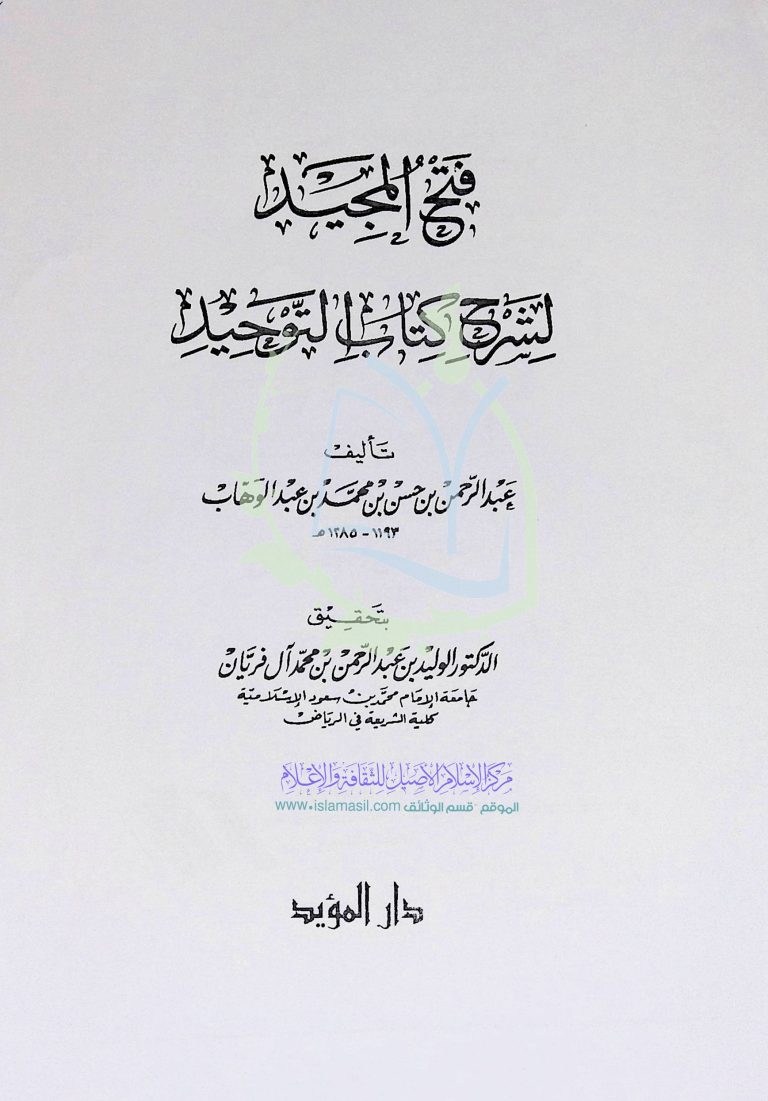 فَتْحُ المَجِيْد
لِشَرْحِ كِتَابِ التَّوْحِيْدِ
تَأليف
عَبْد الرَّحمٰن بن حسَن بْن محَمَّد بن عَبْد الوَهّاب
١١٩٣ - ١٢٨٥ هـ
بتَحقِيْق
الدّكتور الوليد بن عَبد الرَّحمٰن بن محمّد آل فريَّان
جَامعَة الإمَام محمَّد بن سعود الإسْلاميَّة
كلية الشريعة في الرياض
مركز الإسلام الأصيل للثقافة والإعلام
الموقع - قسم الوثائق www.islamasil.com
دار المؤيد